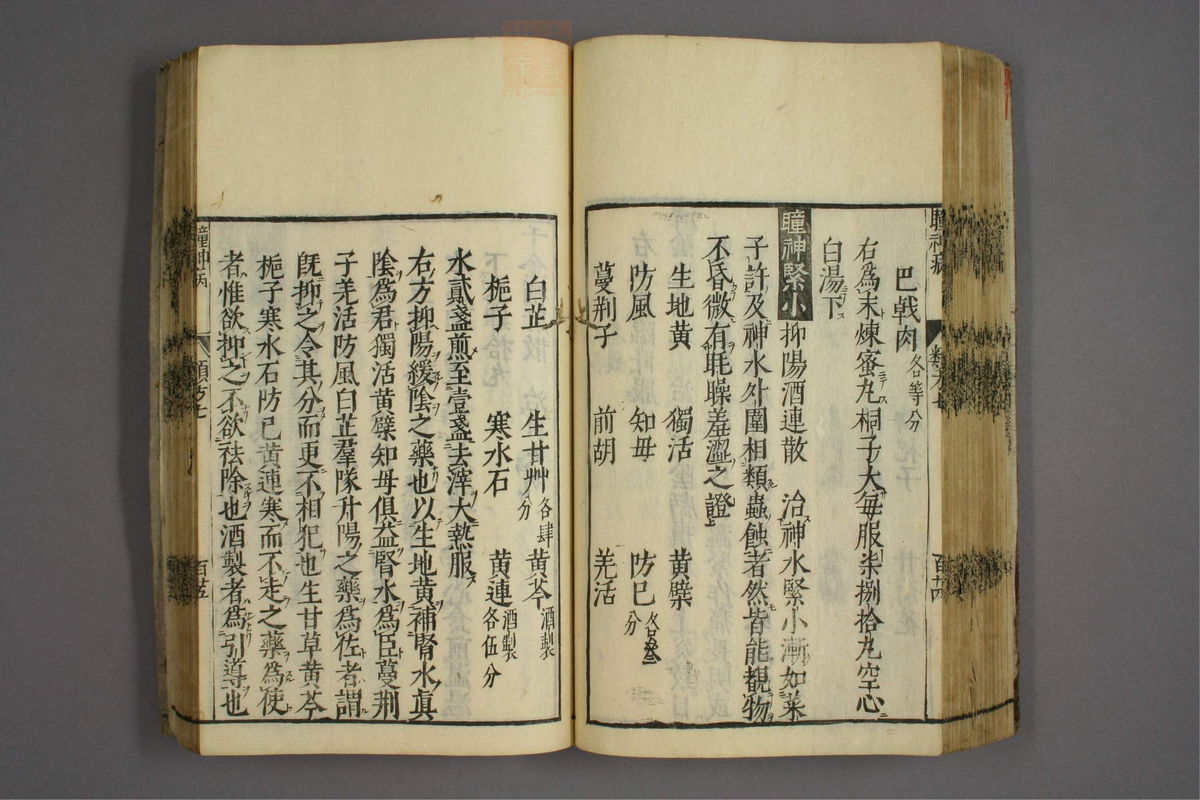 巴戟肉各等分
右為末煉蜜丸桐子大每服柒捌拾丸空心
白湯下
瞳神緊小 抑陽酒連散 治神水緊小漸如菜
子許及神水外圍相類蟲蝕者然皆能覩物
不昏微有眊矂羞澀之證
生地黃 獨活 黃檗
防風 知毋 防巳各叄分
蔓荆子 前胡 羌活
白芷 生甘艸各肆分 黃芩酒製
梔子 寒水石 黃連酒製各伍分
水貳盞煎至壹盞去滓大熱服
右方抑陽緩陰之藥也以生地黃補腎水眞
陰為君獨活黃檗知母俱益腎水為臣蔓荆
子羌活防風白芷羣隊升陽之藥為佐者謂
旣抑之令其分而更不相犯也生甘草黃芩
梔子寒水石防已黃連寒而不走之藥為使
者惟欲抑之不欲袪除也酒製者為引導也
瞳神病
百廿五